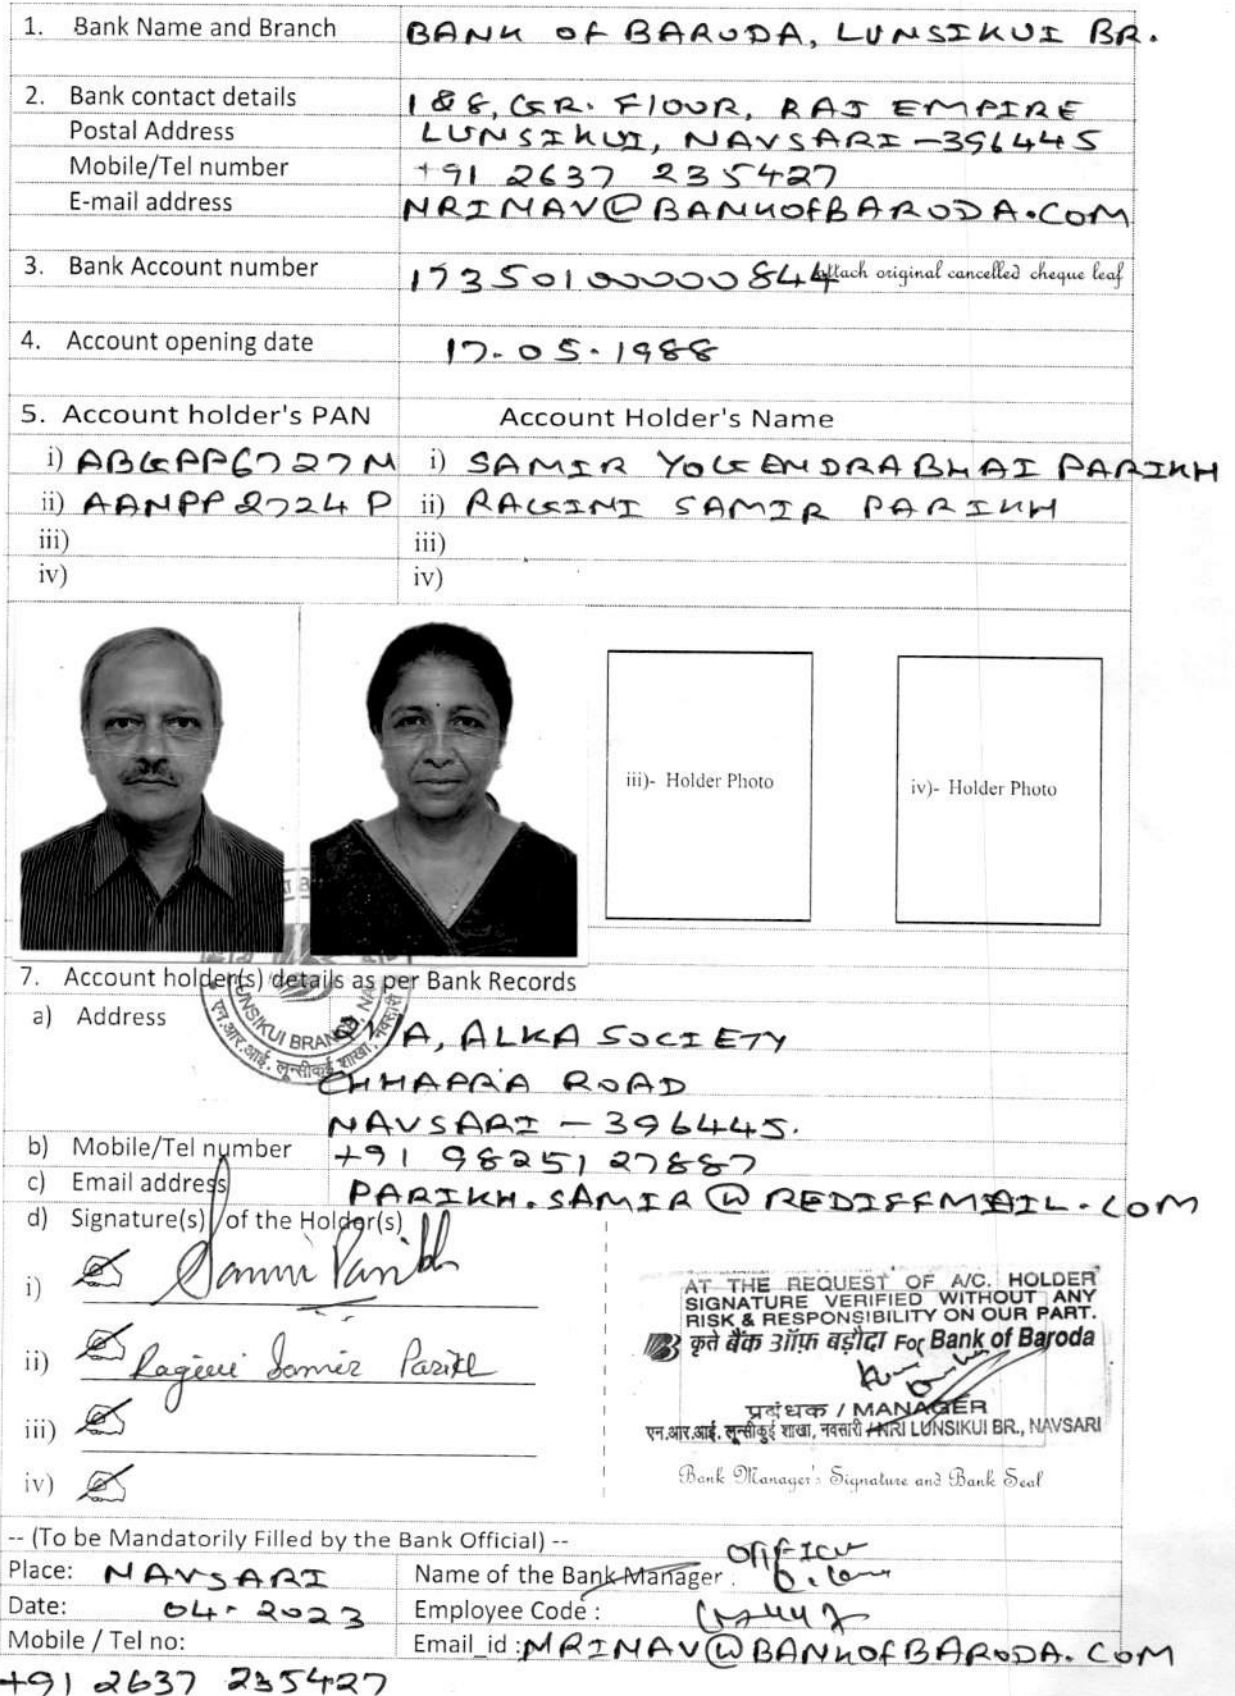 1. Bank Name and Branch BANK OF BARODA, LUNSIKUI BR.
2. Bank contact details 1 & 8, GR. FLOUR, RAJ EMPIRE
Postal Address LUNSIKUI, NAVSARI - 396445
Mobile/Tel number +91 2637 235427
E-mail address NRINAV@BANKOFBARODA.COM
3. Bank Account number 17350100000844 attach original cancelled cheque leaf
4. Account opening date 17.05.1988
5. Account holder's PAN Account Holder's Name
i) ABGPP6727M i) SAMIR YOGENDRABHAI PARIKH
ii) AANPP2724P ii) RAGINI SAMIR PARIKH
iii) iii)
iv) iv)
iii)- Holder Photo iv)- Holder Photo
7. Account holder(s) details as per Bank Records
a) Address /A, ALKA SOCIETY
LUNSIKUI BRANCH,
एन.आर.आई. लून्सीकुई शाखा, नवसारी
CHHAPRA ROAD
NAVSARI - 396445.
b) Mobile/Tel number +91 98251 27887
c) Email address PARIKH.SAMIR@REDIFFMAIL.COM
d) Signature(s) of the Holder(s)
i) Samir Parikh
ii) Ragini Samir Parikh
iii)
iv)
AT THE REQUEST OF A/C. HOLDER
SIGNATURE VERIFIED WITHOUT ANY
RISK & RESPONSIBILITY ON OUR PART.
कृते बैंक ऑफ़ बड़ौदा For Bank of Baroda
प्रबंधक / MANAGER
एन.आर.आई. लून्सीकुई शाखा, नवसारी / NRI LUNSIKUI BR., NAVSARI
Bank Manager's Signature and Bank Seal
-- (To be Mandatorily Filled by the Bank Official) --
Officer
Place: NAVSARI Name of the Bank Manager :
Date: 04-2023 Employee Code :
Mobile / Tel no: Email_id : NRINAV@BANKOFBARODA.COM
+91 2637 235427